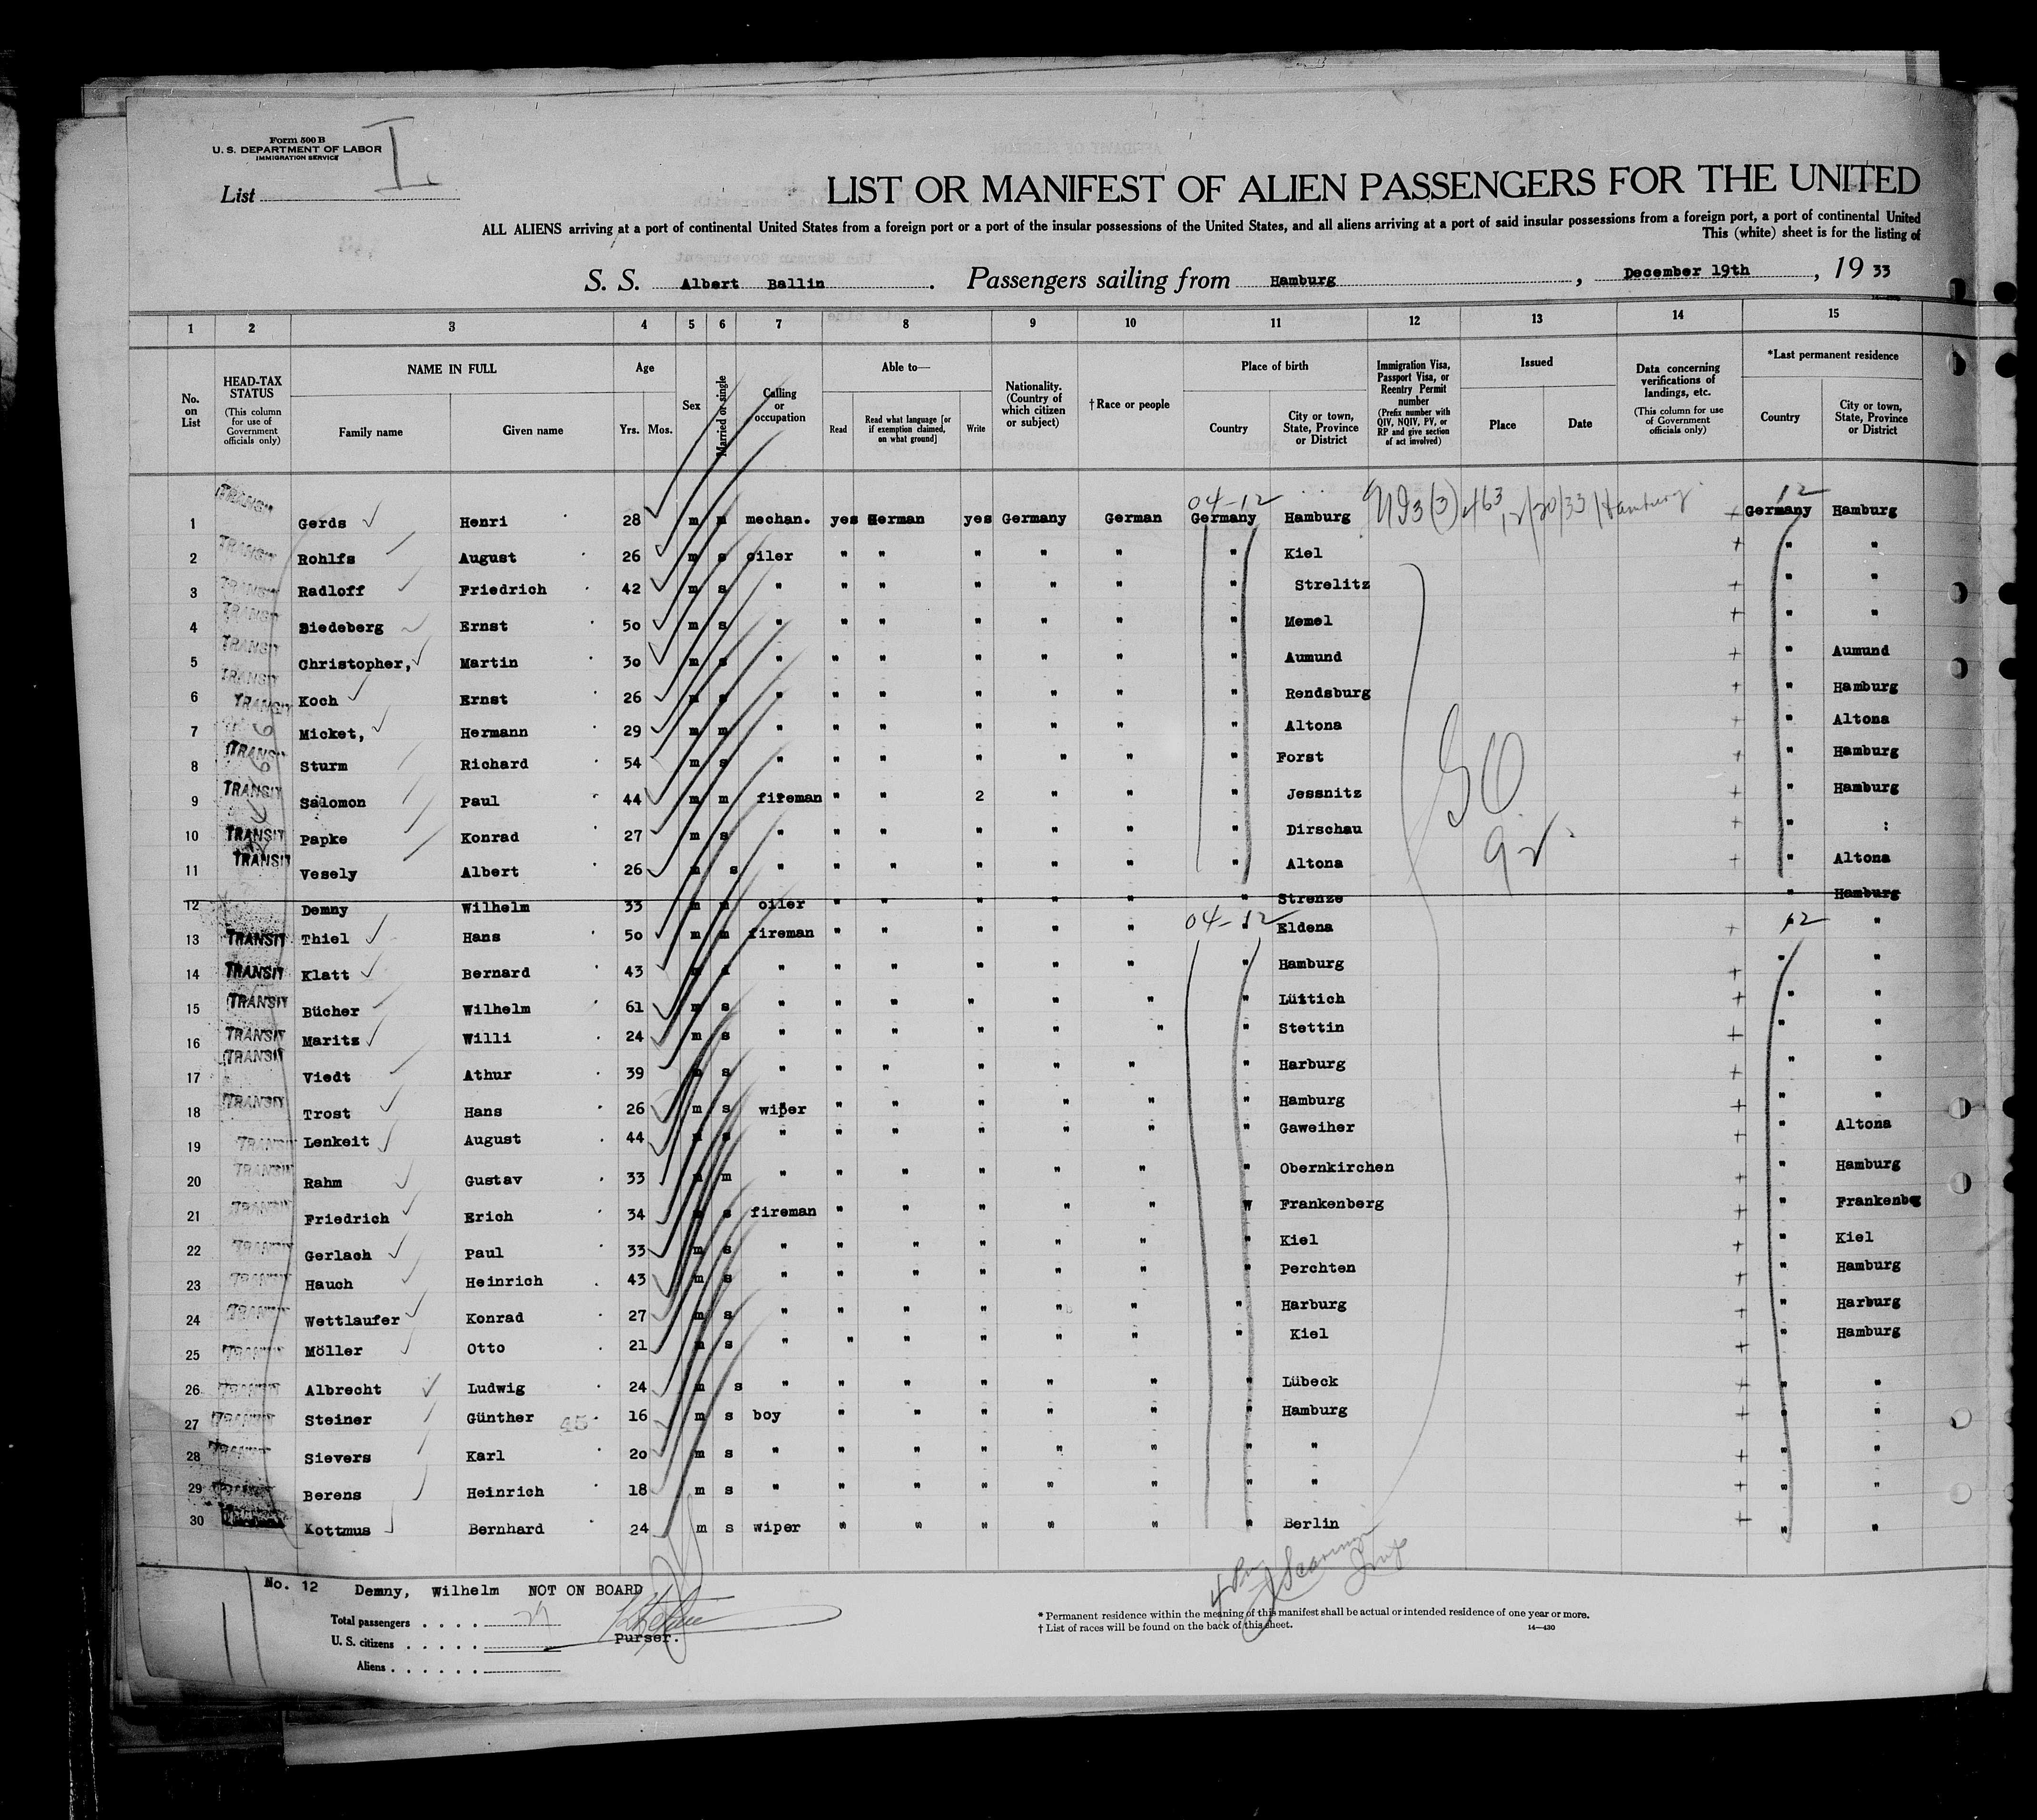 Form 500 B
U. S. DEPARTMENT OF LABOR
IMMIGRATION SERVICE
List I.
LIST OR MANIFEST OF ALIEN PASSENGERS FOR THE UNITED
ALL ALIENS arriving at a port of continental United States from a foreign port or a port of the insular possessions of the United States, and all aliens arriving at a port of said insular possessions from a foreign port, a port of continental United
This (white) sheet is for the listing of
S. S. Albert Ballin. Passengers sailing from Hamburg, December 19th, 19 33
1 2 3 4 5 6 7 8 9 10 11 12 13 14 15
No. on List HEAD-TAX STATUS (This column for use of Government officials only) NAME IN FULL Family name Given name Age Yrs. Mos. Sex Married or single Calling or occupation Able to— Read Read what language [or if exemption claimed, on what ground] Write Nationality. (Country of which citizen or subject) †Race or people Place of birth Country City or town, State, Province or District Immigration Visa, Passport Visa, or Reentry Permit number (Prefix number with QIV, NQIV, PV, or RP and give section of act involved) Issued Place Date Data concerning verifications of landings, etc. (This column for use of Government officials only) *Last permanent residence Country City or town, State, Province or District
04-12 12
1 TRANSIT Gerds Henri 28 m m mechan. yes German yes Germany German Germany Hamburg 463 12/20/33 Hamburg + Germany Hamburg
2 TRANSIT Rohlfs August 26 m s oiler " " " " " " Kiel + " "
3 TRANSIT Radloff Friedrich 42 m s " " " " " " " Strelitz + " "
4 TRANSIT Biedeberg Ernst 50 m s " " " " " " " Memel + " "
5 TRANSIT Christopher, Martin 30 m s " " " " " " " Aumund + " Aumund
6 TRANSIT Koch Ernst 26 m s " " " " " " " Rendsburg + " Hamburg
7 TRANSIT Micket, Hermann 29 m m " " " " " " " Altona + " Altona
8 TRANSIT Sturm Richard 54 m s " " " " " " " Forst + " Hamburg
9 TRANSIT Salomon Paul 44 m m fireman " " 2 " " " Jessnitz + " Hamburg
10 TRANSIT Papke Konrad 27 m s " " " " " " " Dirschau + " :
11 TRANSIT Vesely Albert 26 m s " " " " " " " Altona + " Altona
12 Demny Wilhelm 33 m m oiler " " " " " " Strenze " Hamburg
13 TRANSIT Thiel Hans 50 m m fireman " " " " " 04-12 " Eldena + 12 " "
14 TRANSIT Klatt Bernard 43 " " " " " " " Hamburg + " "
15 TRANSIT Bücher Wilhelm 61 m s " " " " " " " Lüttich + " "
16 TRANSIT Maritz Willi 24 m s " " " " " " " Stettin + " "
17 TRANSIT Viedt Athur 39 m s " " " " " " " Harburg + " "
18 TRANSIT Trost Hans 26 m s wiper " " " " " " Hamburg + " "
19 TRANSIT Lenkeit August 44 m s " " " " " " " Gaweiher + " Altona
20 TRANSIT Rahm Gustav 33 m m " " " " " " " Obernkirchen + " Hamburg
21 TRANSIT Friedrich Erich 34 m s fireman " " " " " " Frankenberg + " Frankenbg
22 TRANSIT Gerlach Paul 33 m s " " " " " " " Kiel + " Kiel
23 TRANSIT Hauch Heinrich 43 m s " " " " " " " Perchten + " Hamburg
24 TRANSIT Wettlaufer Konrad 27 m s " " " " " " " Harburg + " Harburg
25 TRANSIT Möller Otto 21 m s " " " " " " " Kiel + " Hamburg
26 TRANSIT Albrecht Ludwig 24 m s " " " " " " " Lübeck + " "
27 TRANSIT Steiner Günther 45 16 m s boy " " " " " " Hamburg + " "
28 TRANSIT Sievers Karl 20 m s " " " " " " " " + " "
29 TRANSIT Berens Heinrich 18 m s " " " " " " " " + " "
30 Kottmus Bernhard 24 m s wiper " " " " " " Berlin + " "
No. 12 Demny, Wilhelm NOT ON BOARD
Total passengers . . . . 29
U. S. citizens . . . . .
Purser.
Aliens . . . . . .
* Permanent residence within the meaning of this manifest shall be actual or intended residence of one year or more.
† List of races will be found on the back of this sheet.
14—430